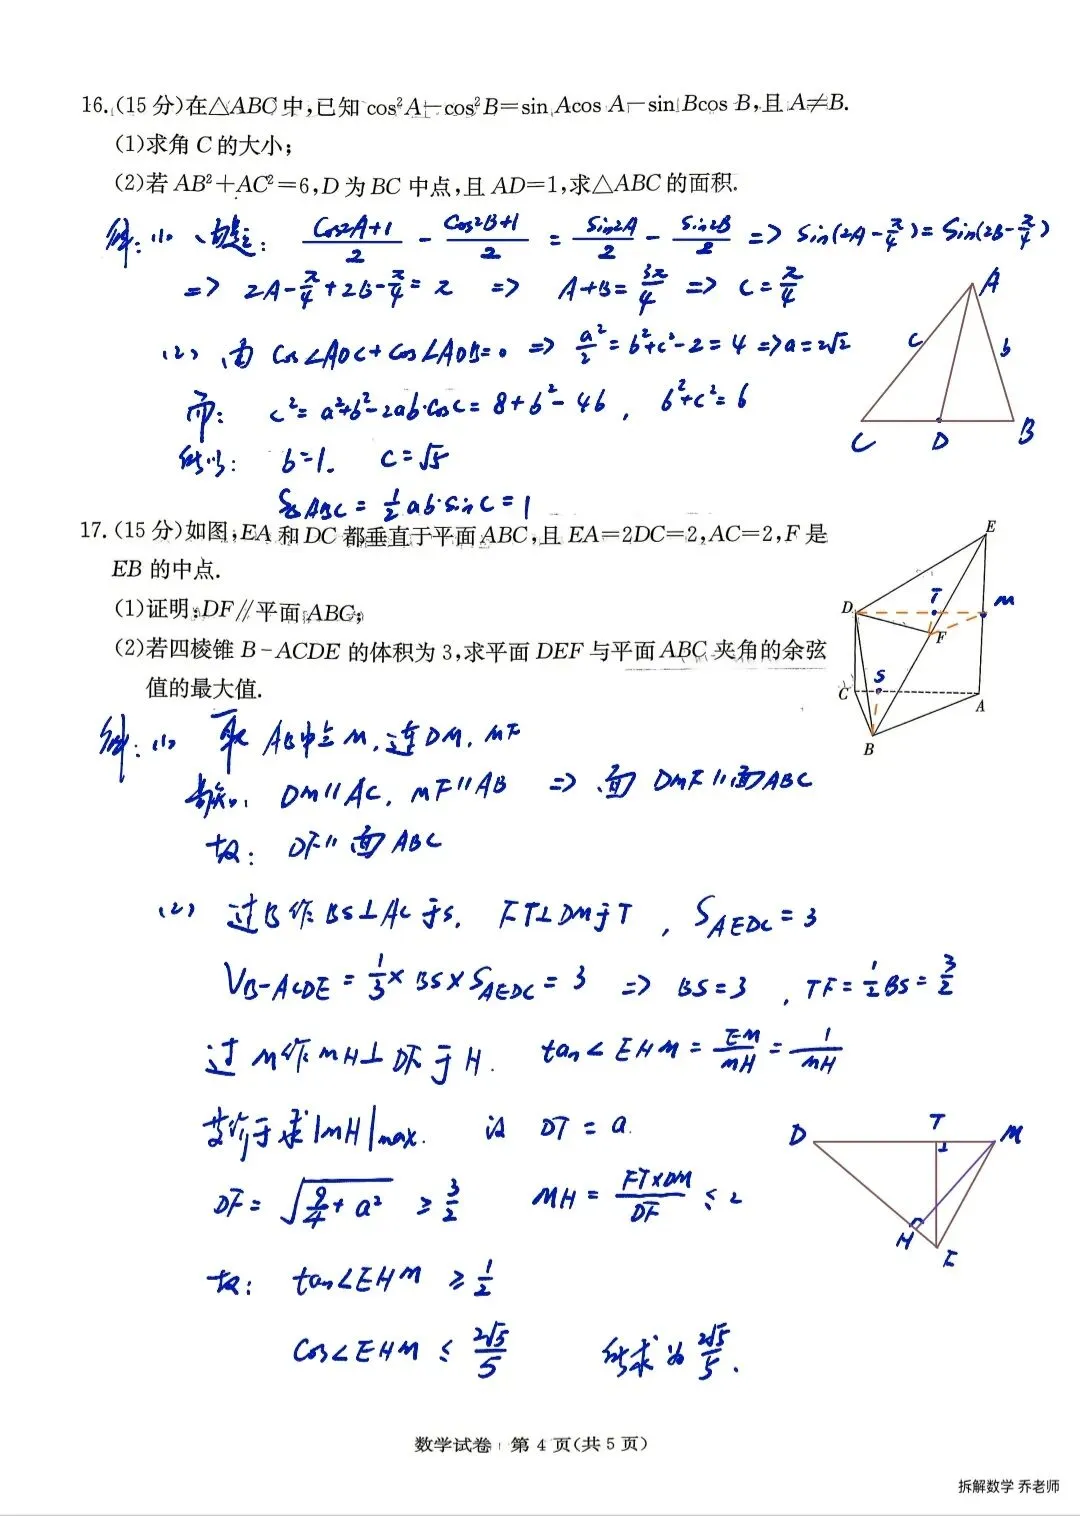 16.(15分)在△ABC中,已知cos²A-cos²B=sin Acos A-sin Bcos B,且A≠B.
(1)求角C的大小;
(2)若AB²+AC²=6,D为BC中点,且AD=1,求△ABC的面积.
解:(1) 由题: (cos2A+1)/2 - (cos2B+1)/2 = sin2A/2 - sin2B/2 => sin(2A-π/4)=sin(2B-π/4)
=> 2A-π/4+2B-π/4=π => A+B=3π/4 => C=π/4
(2) 由 cos∠ADC+cos∠ADB=0 => a²/2=b²+c²-2=4 => a=2√2
而: c²=a²+b²-2ab·cosC=8+b²-4b, b²+c²=6
所以: b=1. c=√5
S△ABC=1/2ab·sinC=1
A
c
b
C
D
B
17.(15分)如图,EA和DC都垂直于平面ABC,且EA=2DC=2,AC=2,F是
EB的中点.
(1)证明:DF∥平面ABC;
(2)若四棱锥B-ACDE的体积为3,求平面DEF与平面ABC夹角的余弦
值的最大值.
E
D
T
M
F
C
S
A
B
解:(1) 取AB中点M,连DM,MF
易知: DM∥AC, MF∥AB => 面DMF∥面ABC
故: DF∥面ABC
(2) 过B作BS⊥AC于S, FT⊥DM于T, S_AEDC=3
V_B-ACDE=1/3×BS×S_AEDC=3 => BS=3, TF=1/2BS=3/2
过M作MH⊥DF于H. tan∠EHM=EM/MH=1/MH
等价于求|MH|max. 设DT=a.
DF=√(9/4+a²)≥3/2 MH=FT×DM/DF≤2
故: tan∠EHM≥1/2
cos∠EHM≤2√5/5 所求为2√5/5.
D
T
M
H
F
数学试卷 第4页(共5页)
拆解数学 乔老师